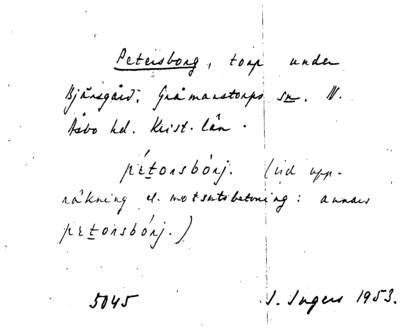 Petersborg, torp under
Bjärsgård, Gråmanstorps sn. N.
Åsbo hd. Krist. län.
pétǝrsbórj. (vid upp-
räkning el. motsatsbetoning: annars
petǝrsbórj.)
5045 I. Ingers 1953.